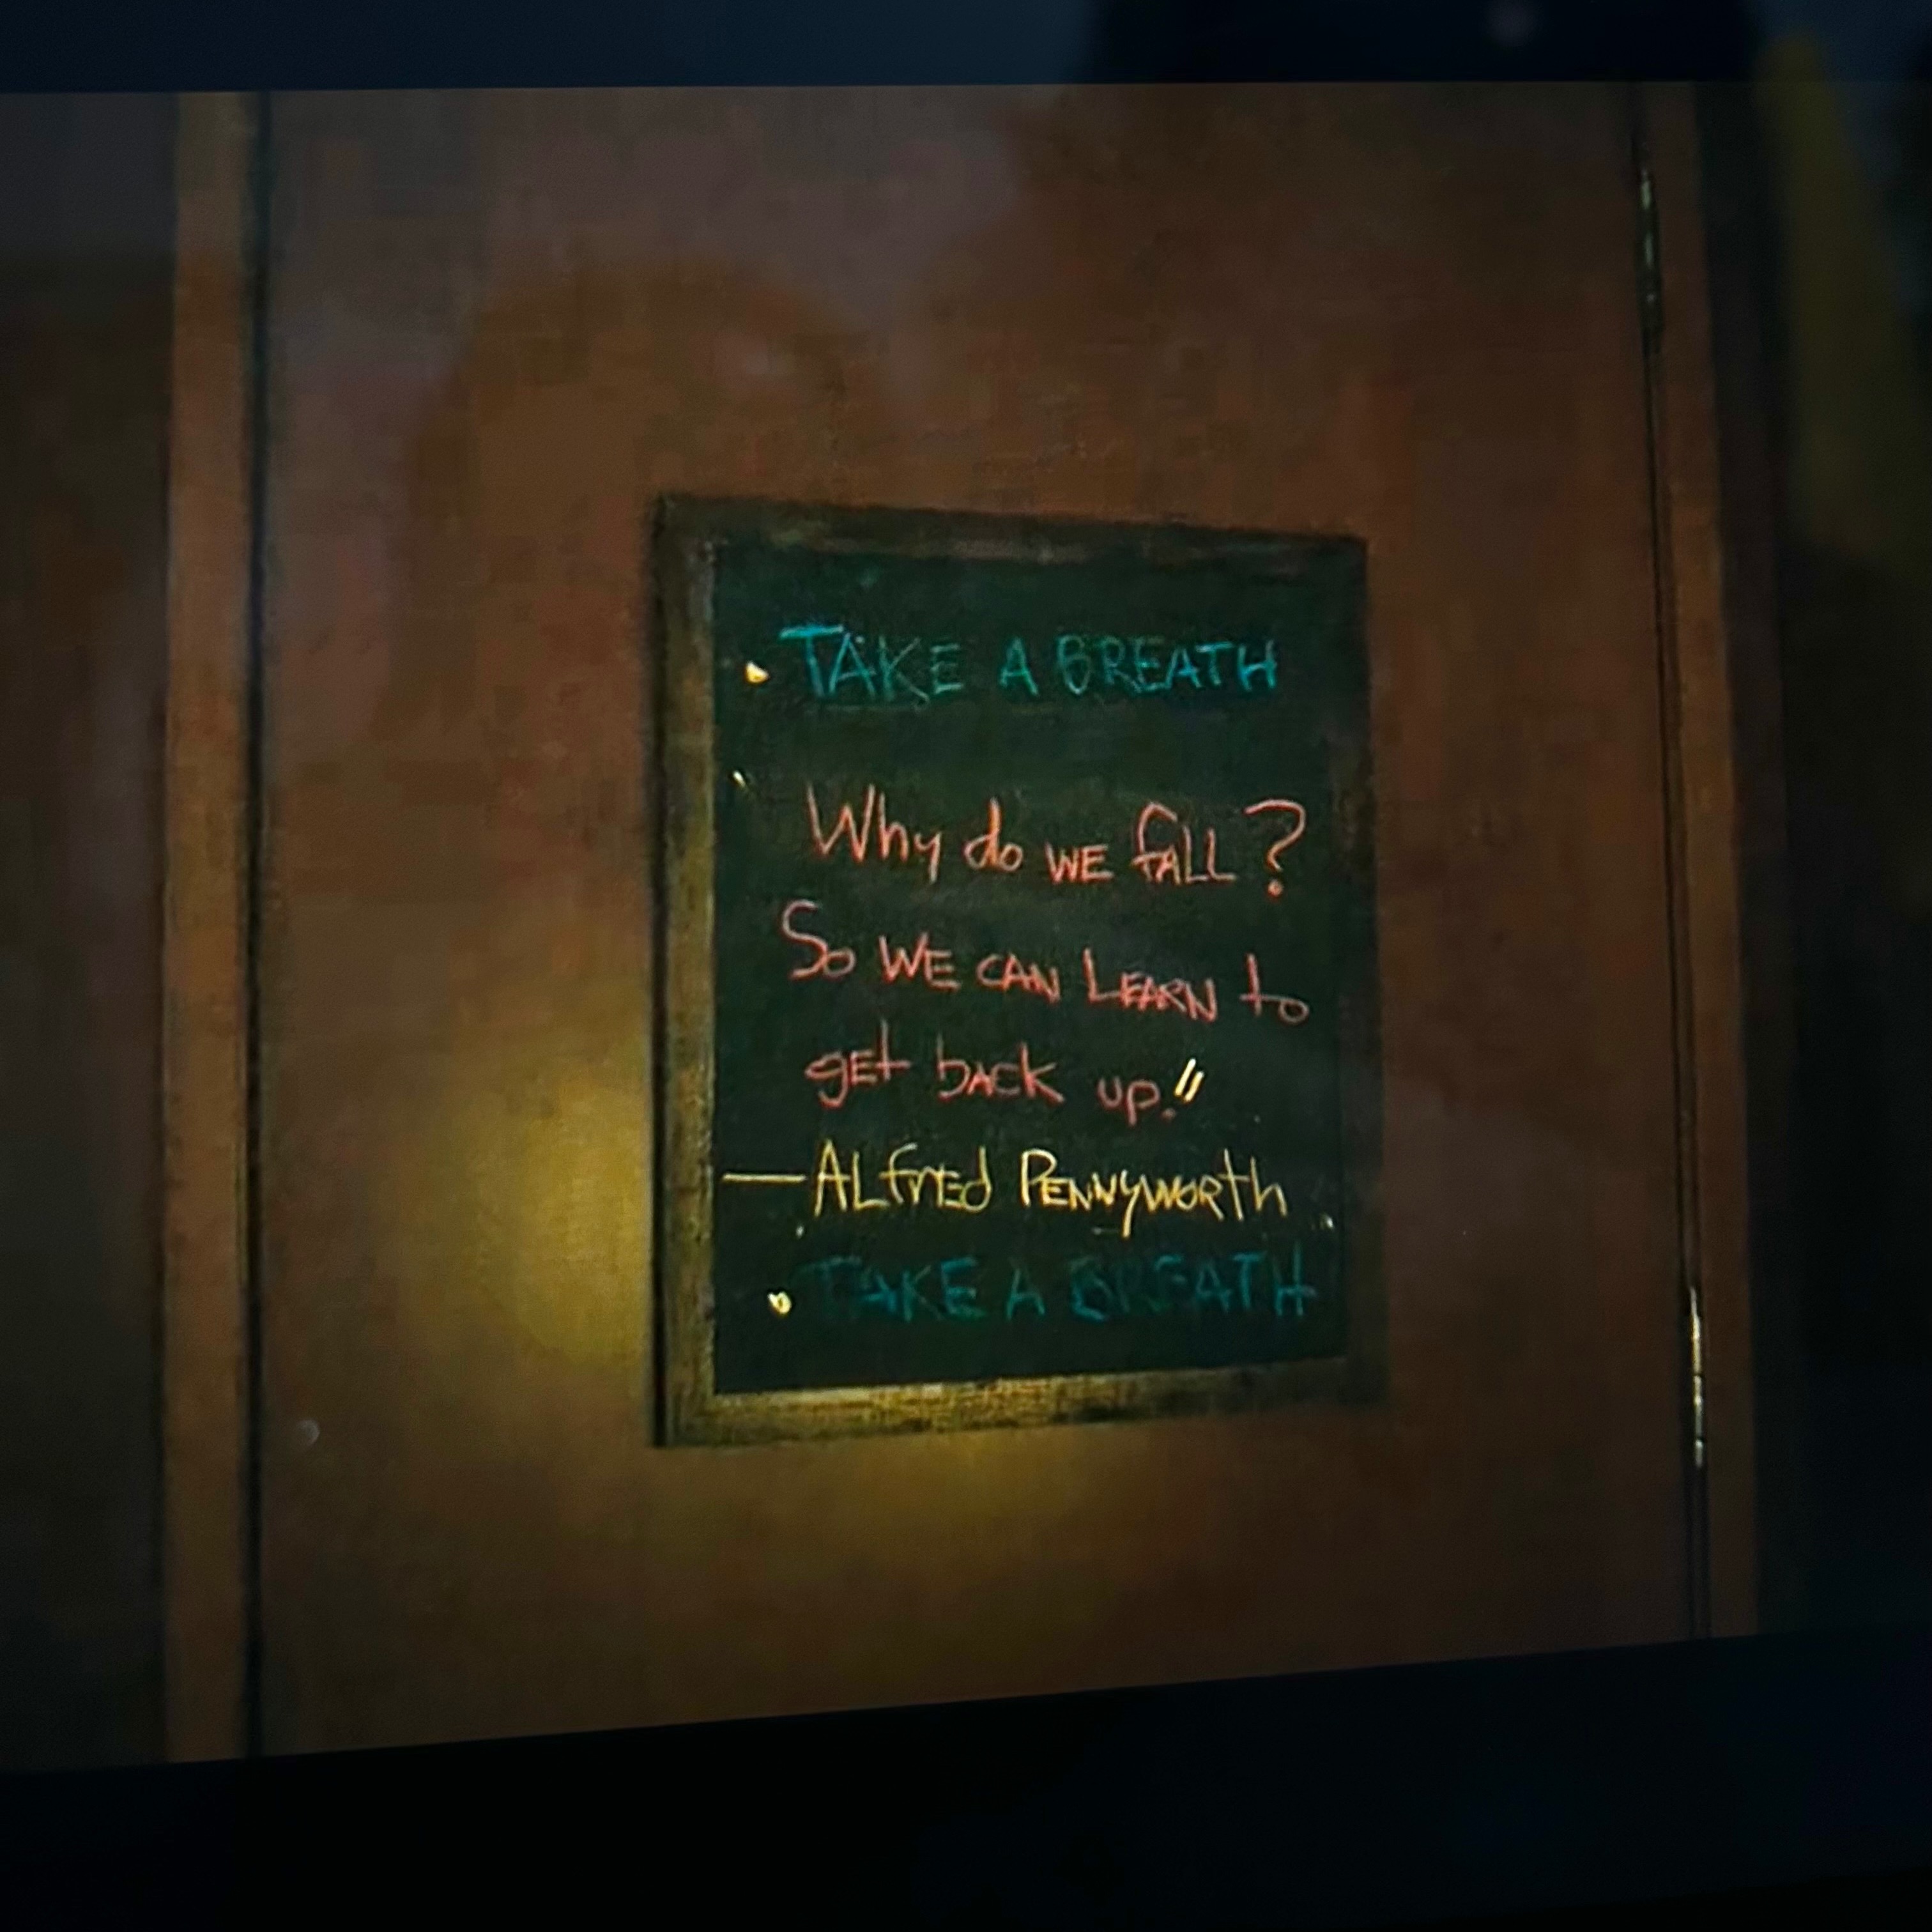 TAKE A BREATH
Why do WE fALL?
So WE CAN LEARN to
gEt bACK up."
—ALfrED PENNyWORth
TAKE A BREATH